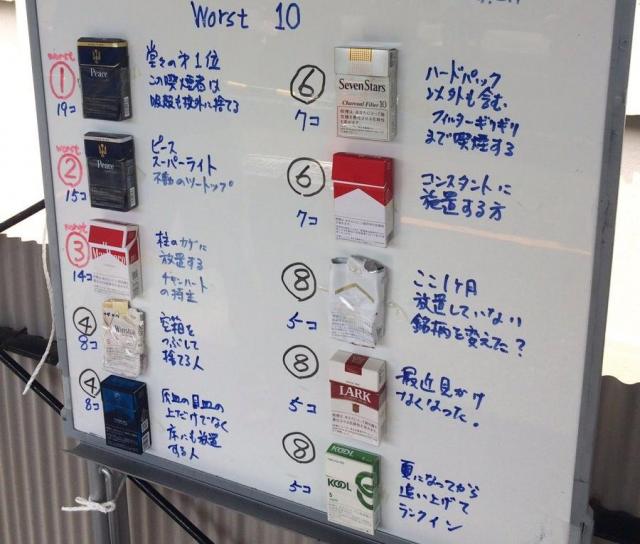 Worst 10
worst
1
19コ
Peace
堂々の第1位
この喫煙者は
吸殻も枠外に捨てる
worst
2
15コ
Peace
ピース
スーパーライト
不動のツートップ
worst
3
14コ
Marlboro
柱のカゲに
放置する
チキンハート
の持主
4
8コ
Winston
空箱を
つぶして
捨てる人
4
8コ
灰皿の目皿の
上だけでなく
床にも放置
する人
6
7コ
SevenStars
Charcoal Filter 10
ハードパック
ソメ外も含む。
フィルターギリギリ
まで喫煙する
6
7コ
コンスタントに
放置する方
8
5コ
ここ1ヶ月
放置していない
銘柄を変えた?
8
5コ
LARK
最近見かけ
なくなった。
8
5コ
KOOL
KOOL
夏になってから
追い上げて
ランクイン